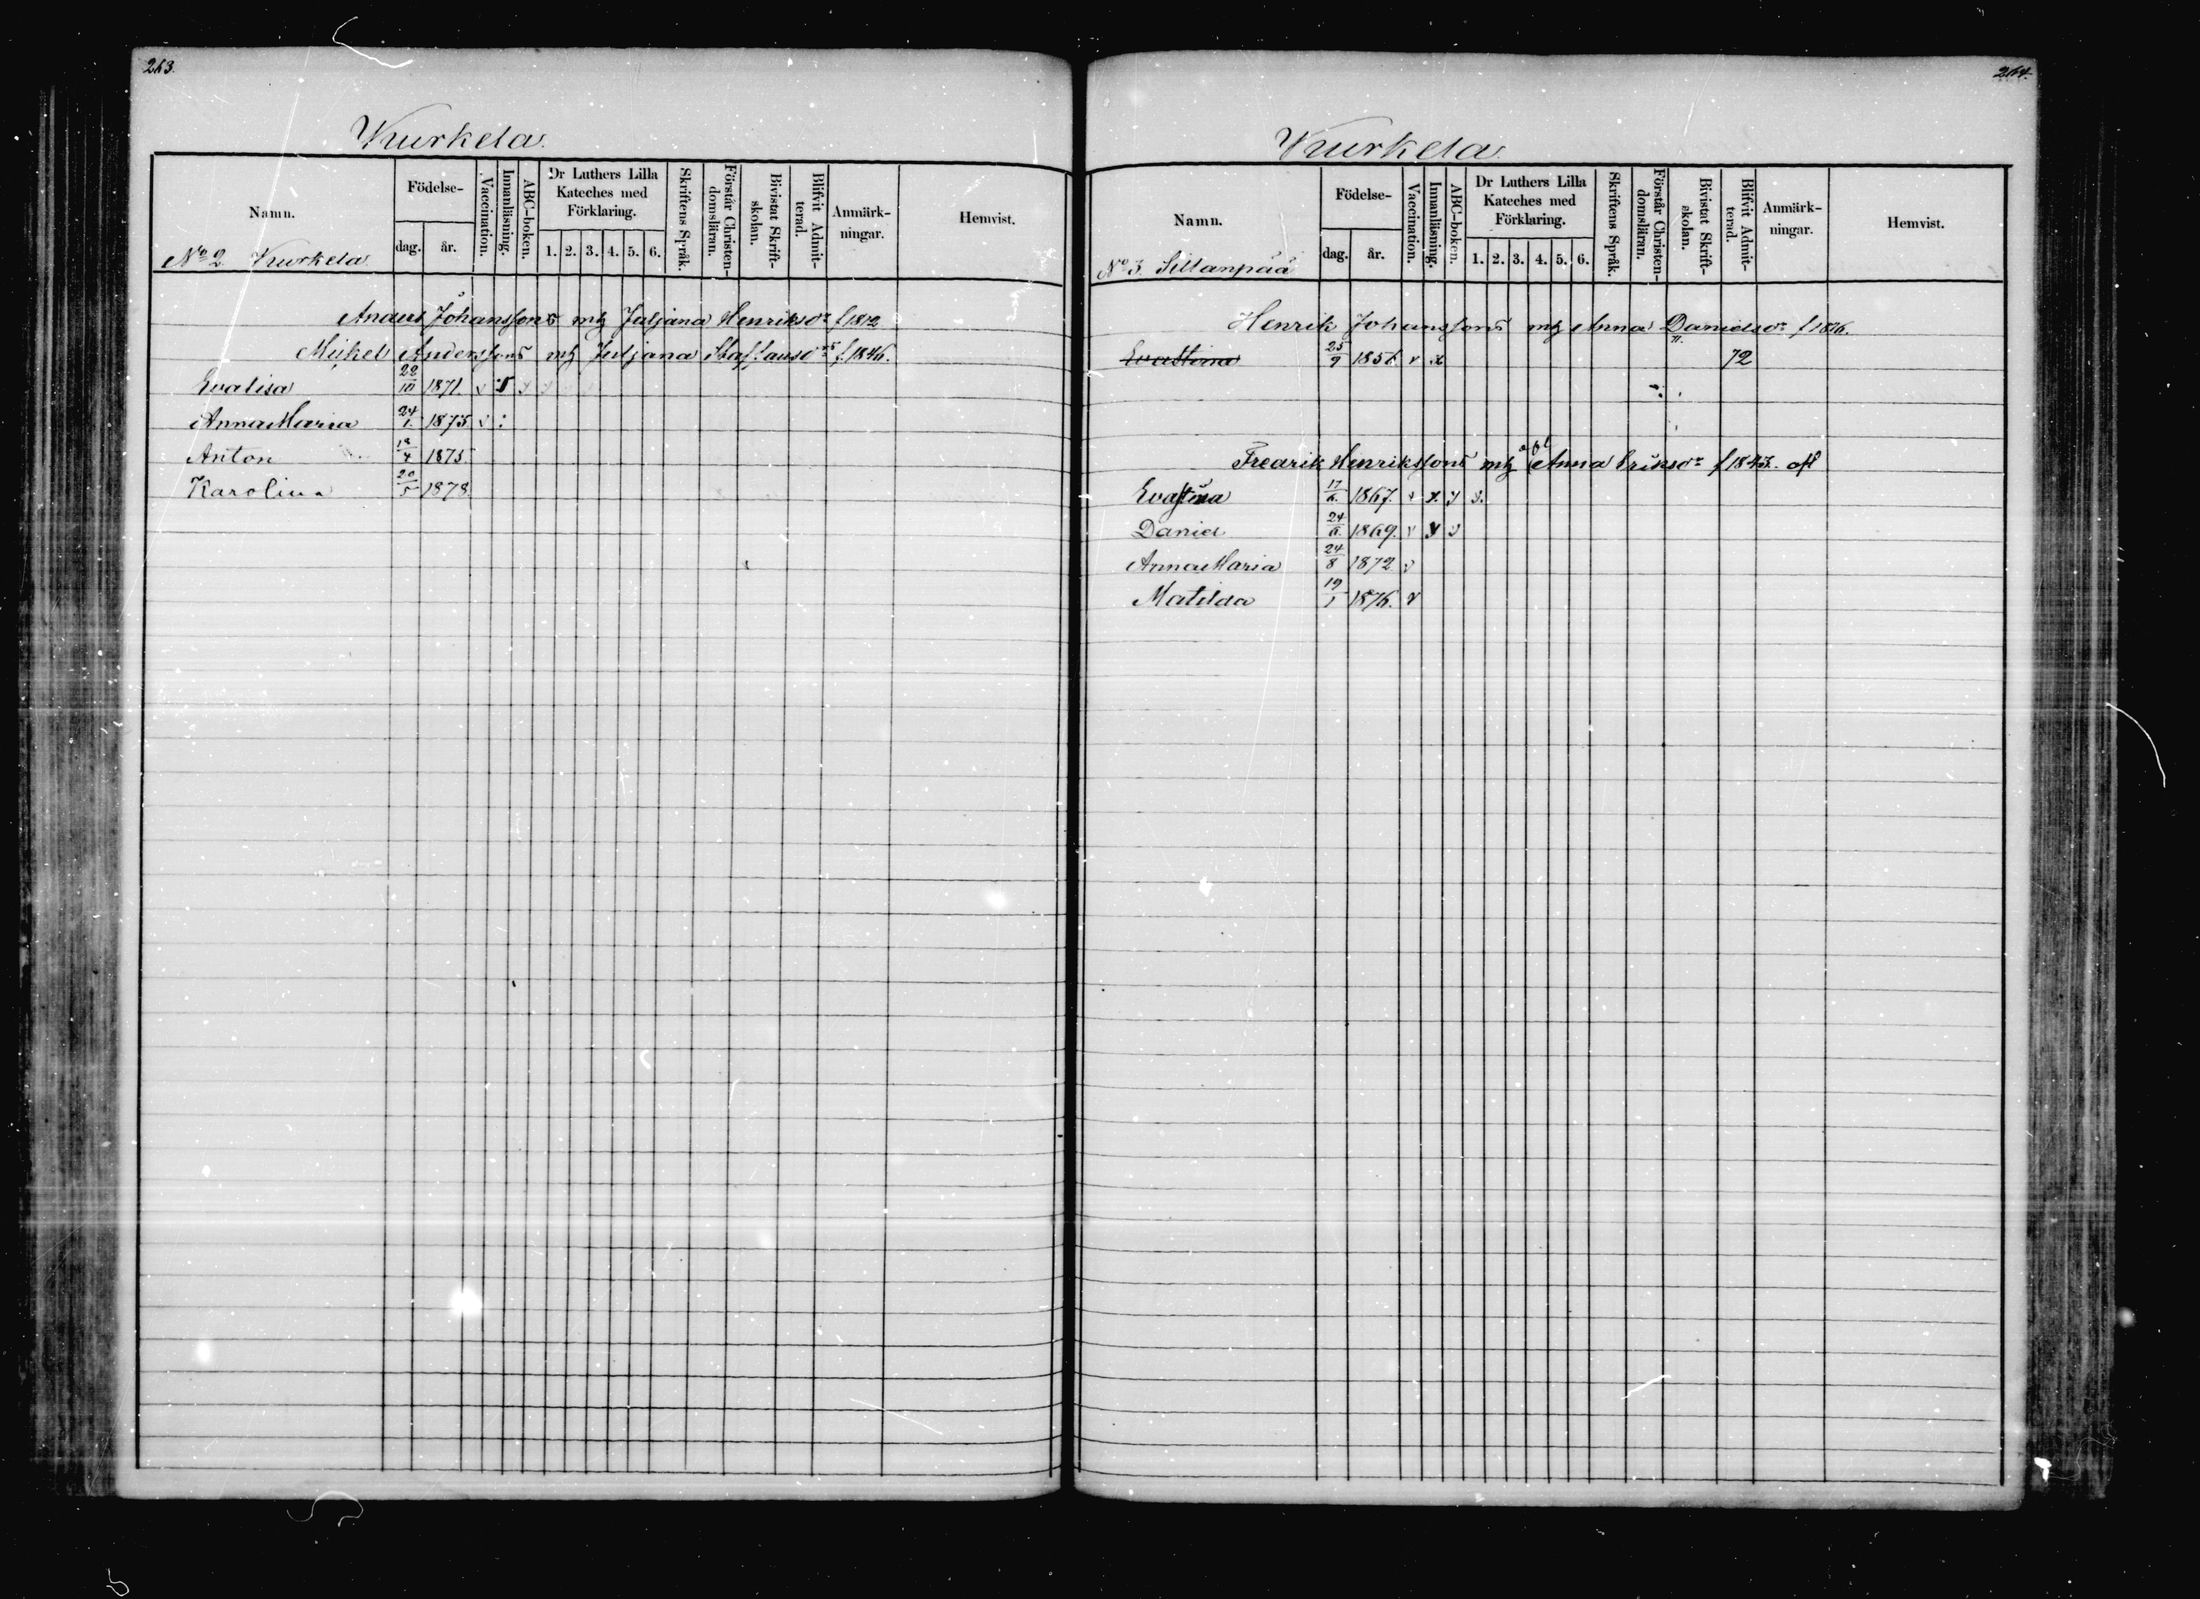 263.
Kurkela.
Namn.
Födelse-
dag.
år.
Vaccination.
Innanläsning.
ABC-boken.
Dr Luthers Lilla
Kateches med
Förklaring.
1. 2. 3. 4. 5. 6.
Skriftens Språk.
Förstår Christen-
domsläran.
Bivistat Skrift-
skolan.
Blifvit Admit-
terad.
Anmärk-
ningar.
Hemvist.
No 2 Kurkela
Anders Johanssons mh Juljana Henriksdr f 1812
Mickel Anderssons mh Juljana Staffansdr f. 1846.
Evalisa 22/10 1871. v
Anna Maria 24/1. 1873 v
Anton 18/4 1875.
Karolina 20/5 1878
264.
Kurkela.
Namn.
Födelse-
dag.
år.
Vaccination.
Innanläsning.
ABC-boken.
Dr Luthers Lilla
Kateches med
Förklaring.
1. 2. 3. 4. 5. 6.
Skriftens Språk.
Förstår Christen-
domsläran.
Bivistat Skrift-
skolan.
Blifvit Admit-
terad.
Anmärk-
ningar.
Hemvist.
No 3. Sillanpää
Henrik Johanssons mh Anna Danielsdr f 1816.
Evastina 25/9 1856. v x 72
Fredrik Henrikssons mh afl Anna Eriksdr f 1843. afl
Evastina 17/6. 1867. v x y x.
Daniel 24/6. 1869. v y v
Anna Maria 24/8 1872 v
Matilda 19/1 1876. v